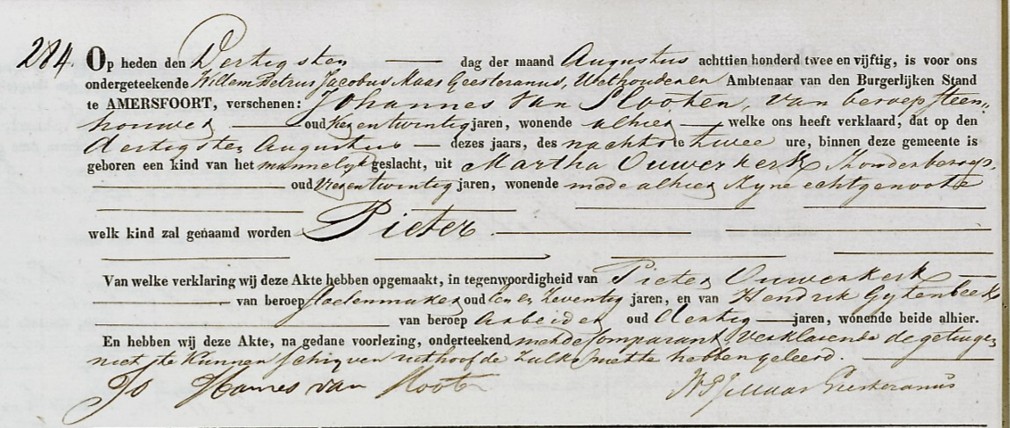 284. Op heden den Dertigsten dag der maand Augustus achttien honderd twee en vijftig, is voor ons
ondergeteekende Willem Petrus Jacobus Maas Geesteranus, Wethouder en Ambtenaar van den Burgerlijken Stand
te AMERSFOORT, verschenen: Johannes van Slooten, van beroep steen„
houwer oud zes en twintig jaren, wonende alhier welke ons heeft verklaard, dat op den
dertigsten Augustus dezes jaars, des nachts te twee ure, binnen deze gemeente is
geboren een kind van het mannelijk geslacht, uit Martha Ouwerkerk Zonder beroep,
oud en twintig jaren, wonende mede alhier zyne echtgenoote
welk kind zal genaamd worden Pieter
Van welke verklaring wij deze Akte hebben opgemaakt, in tegenwoordigheid van Pieter Ouwerkerk
van beroep oud en zeventig jaren, en van Hendrik Gytenbeek
van beroep Arbeider oud dertig jaren, wonende beide alhier.
En hebben wij deze Akte, na gedane voorlezing, onderteekend met de Comparant Verklarende de getuigen
niet te kunnen schryven uit hoofde zulks niette hebben geleerd.
Jo Hannes van Slooten WPJ Maas Geesteranus